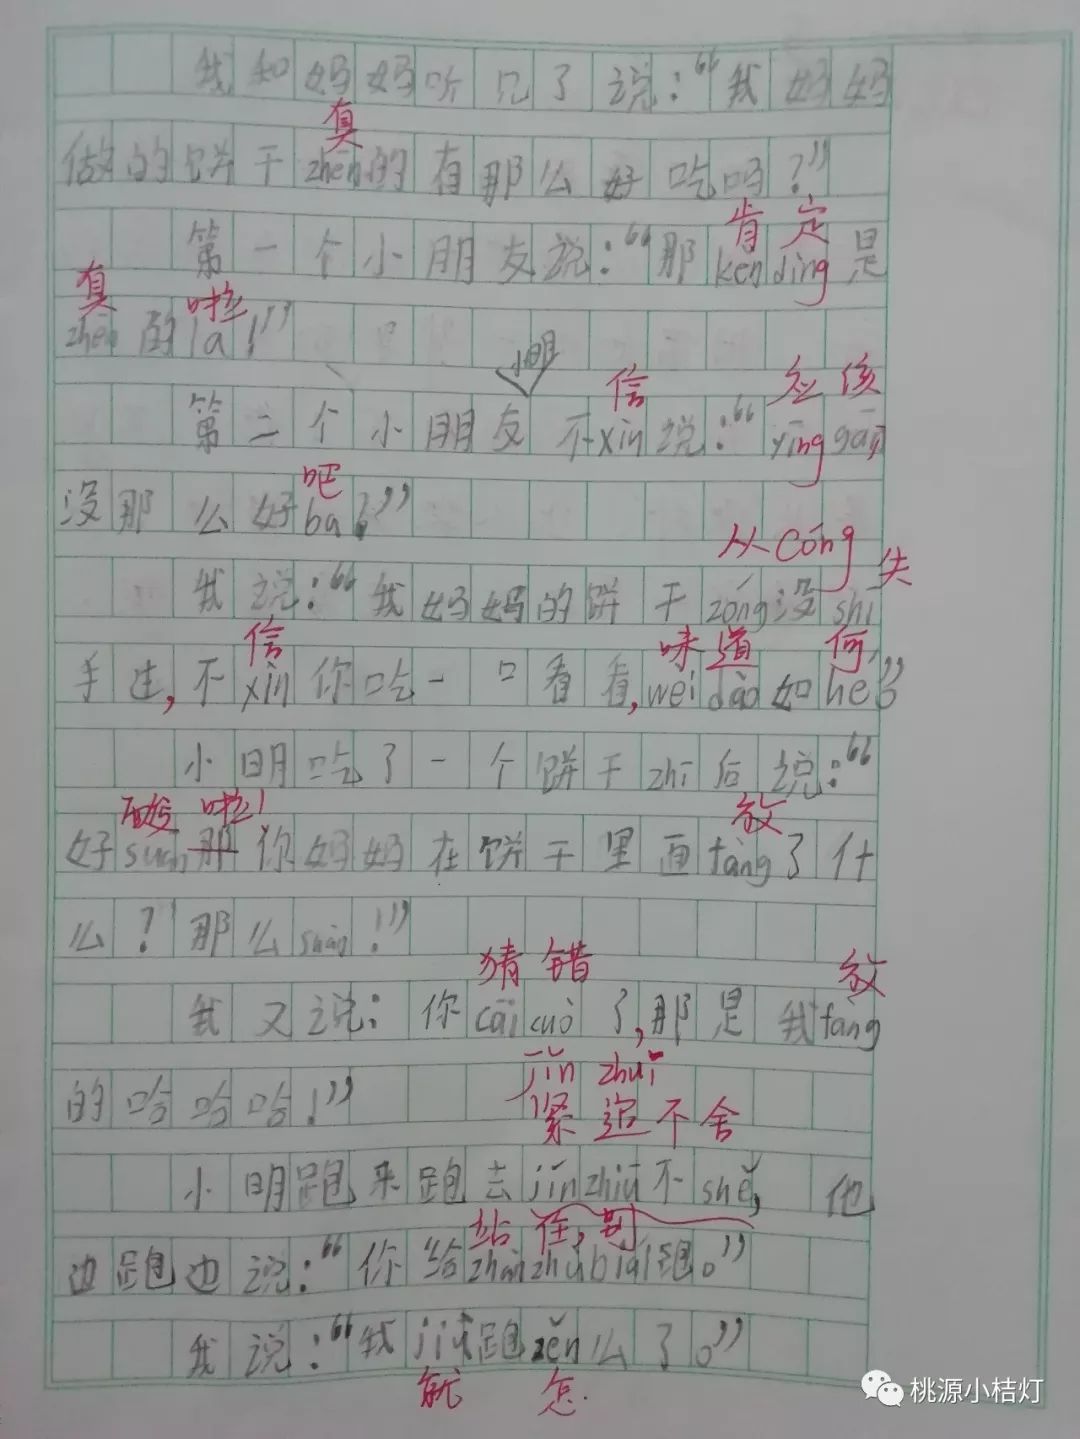 我和妈妈听见了说：“我妈妈
真
做的饼干zhēn的有那么好吃吗？”
肯定
第一个小朋友说：“那kěndìng是
真 啦
zhēn的la！”
小明
信 应该
第二个小朋友不xìn说：“yīng gāi
吧
没那么好ba？”
从cóng 失
我说：“我妈妈的饼干zóng没shī
信 味道 何
手过，不xìn你吃一口看看，wèi dào如hé？”
小明吃了一个饼干zhī后说：“
酸 啦！ 放
好suān那你妈妈在饼干里面fàng了什
么？那么suān！”
猜错 放
我又说：你cāi cuò了，那是我fàng
的哈哈哈！”
jǐn zhuī
紧追不舍
小明跑来跑去jǐn zhuī不shě，他
站住，别
边跑边说：“你给zhàn zhù bié跑。”
我说：“我jiù跑zěn么了。”
就 怎
桃源小桔灯